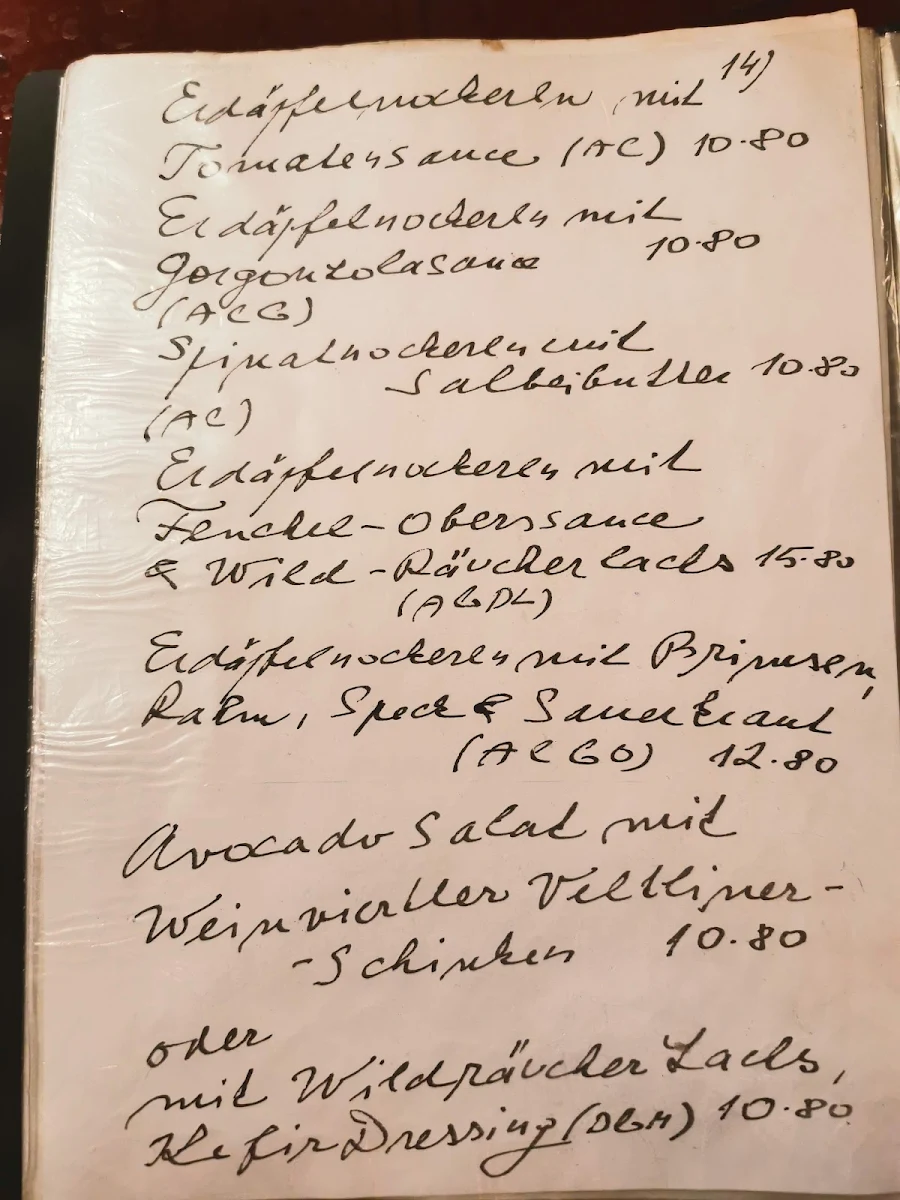 14)
Erdäpfelnockerln mit
Tomatensauce (AC) 10.80
Erdäpfelnockerln mit
Gorgonzolasauce 10.80
(ACG)
Spinatnockerln mit
Salbeibutter 10.80
(AC)
Erdäpfelnockerln mit
Fenchel-Oberssauce
& Wild-Räucherlachs 15.80
(AGDL)
Erdäpfelnockerln mit Brimsen,
Rahm, Speck & Sauerkraut
(ACGO) 12.80
Avocado Salat mit
Weinviertler Veltliner-
-Schinken 10.80
oder
mit Wildräucher Lachs,
Kefir Dressing (DGM) 10.80